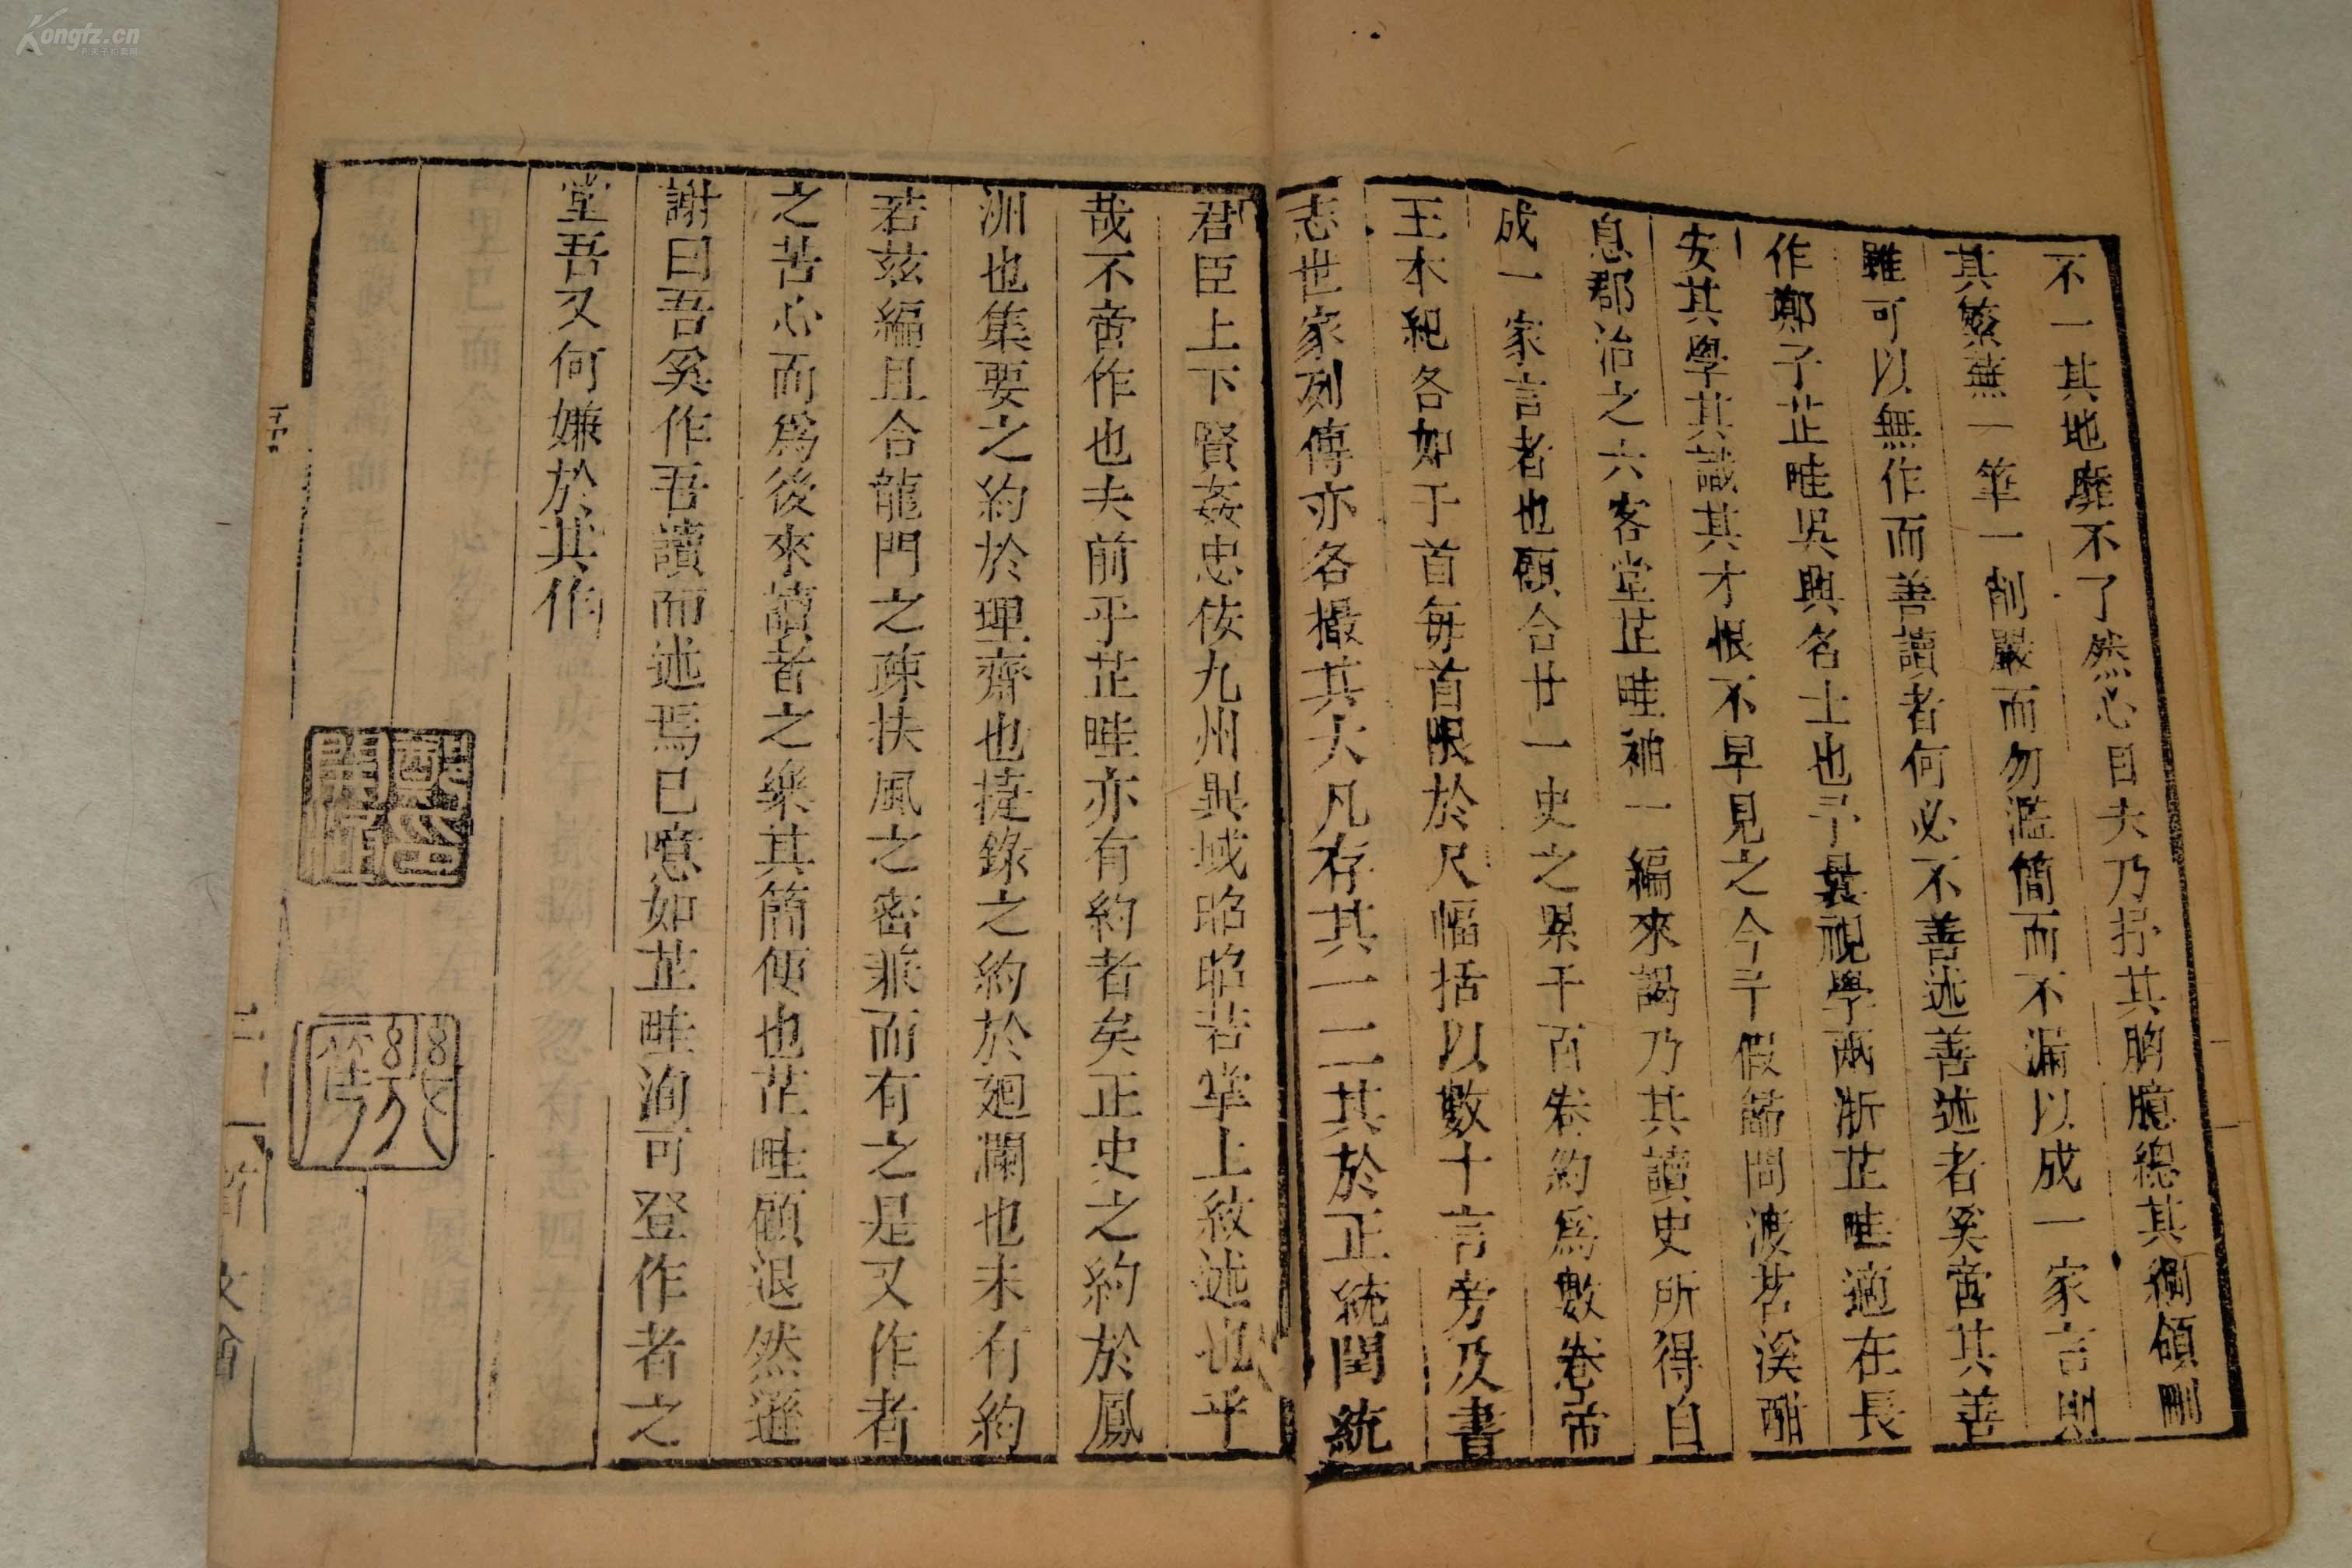 不一其地靡不了然心目夫乃抒其胸臆總其綱領剛
其繁蕪一筆一削嚴而勿濫簡而不漏以成一家言則
雖可以無作而善讀者何必不善述善述者奚啻其善
作鄭子芷畦吳興名士也予曩視學兩浙芷畦適在長
安其學其識其才恨不早見之今予假節問渡苕溪酣
息郡治之六客堂芷畦袖一編來謁乃其讀史所得自
成一家言者也顧合廿一史之累千百卷約爲數卷帝
王本紀各如干首每首限於尺幅括以數十言旁及書
志世家列傳亦各撮其大凡存其一二其於正統閏統
君臣上下賢姦忠佞九州異域昭昭若掌上紋述也乎
哉不啻作也夫前乎芷畦亦有約者矣正史之約於鳳
洲也集要之約於理齋也捷錄之約於廻瀾也未有約
若茲編且合龍門之疎扶風之密兼而有之是又作者
之苦心而爲後來讀者之樂其簡便也芷畦顧退然遜
謝曰吾奚作吾讀而述焉已噫如芷畦洵可登作者之
堂吾又何嫌於其作
Kongfz.cn